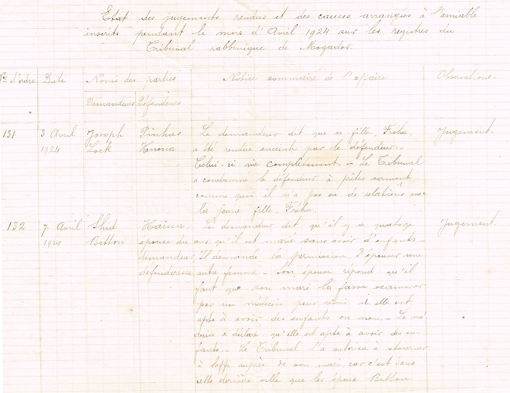 Etat des jugements rendus et des causes arrangées à l'amiable
inscrits pendant le mois d'Avril 1924 sur les registres du
Tribunal rabbinique de Mogador.
N° d'ordre Date Noms des parties Notice sommaire de l'affaire Observations.
Demandeurs Défendeurs
131 3 Avril Joseph Pinhas Le demandeur dit que sa fille, Freha, Jugement.
1924 a été rendue enceinte par le défendeur. -
Celui-ci nie complètement. - Le Tribunal
a condamné le défendeur à prêter serment
comme quoi il n'a pas eu de relations avec
la jeune fille, Freha.
132 7 Avril Bittori Le demandeur dit qu'il y a quatorze Jugement.
1924 épouse du ans qu'il est marié sans avoir d'enfants -
demandeur Il demande la permission d'épouser une
défenderesse autre femme. - Son épouse répond qu'il
faut que son mari la fasse examiner
par un médecin pour voir si elle est
apte à avoir des enfants ou non. - Le mé-
decin a déclaré qu'elle est apte à avoir des en-
fants. - Le Tribunal l'a autorisé à retourner
à Saffi auprès de son mari, car c'est dans
cette dernière ville que les époux Bittori